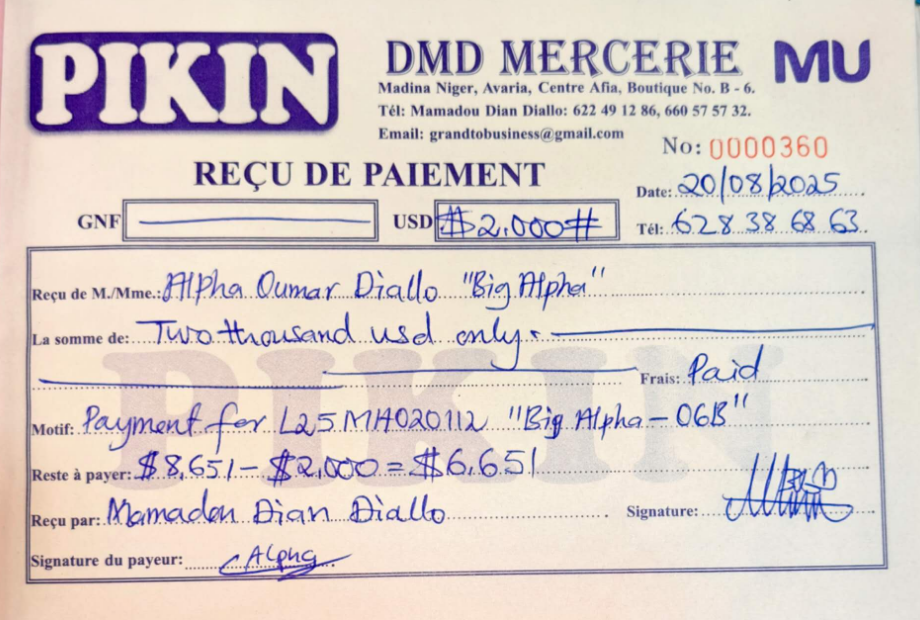 PIKIN
DMD MERCERIE
MU
Madina Niger, Avaria, Centre Afia, Boutique No. B - 6.
Tél: Mamadou Dian Diallo: 622 49 12 86, 660 57 57 32.
Email: grandtobusiness@gmail.com
No: 0000360
REÇU DE PAIEMENT
Date: 20/08/2025
GNF USD #$2.000#
Tél: 628 38 68 63
Reçu de M./Mme.: Alpha Oumar Diallo "Big Alpha"
La somme de: Two thousand usd only.
Frais: Paid
Motif: Payment for L25MHO20112 "Big Alpha - 06B"
Reste à payer: $8,651 - $2,000 = $6.651
Reçu par: Mamadou Dian Diallo
Signature:
Signature du payeur: Alpha
PIKIN